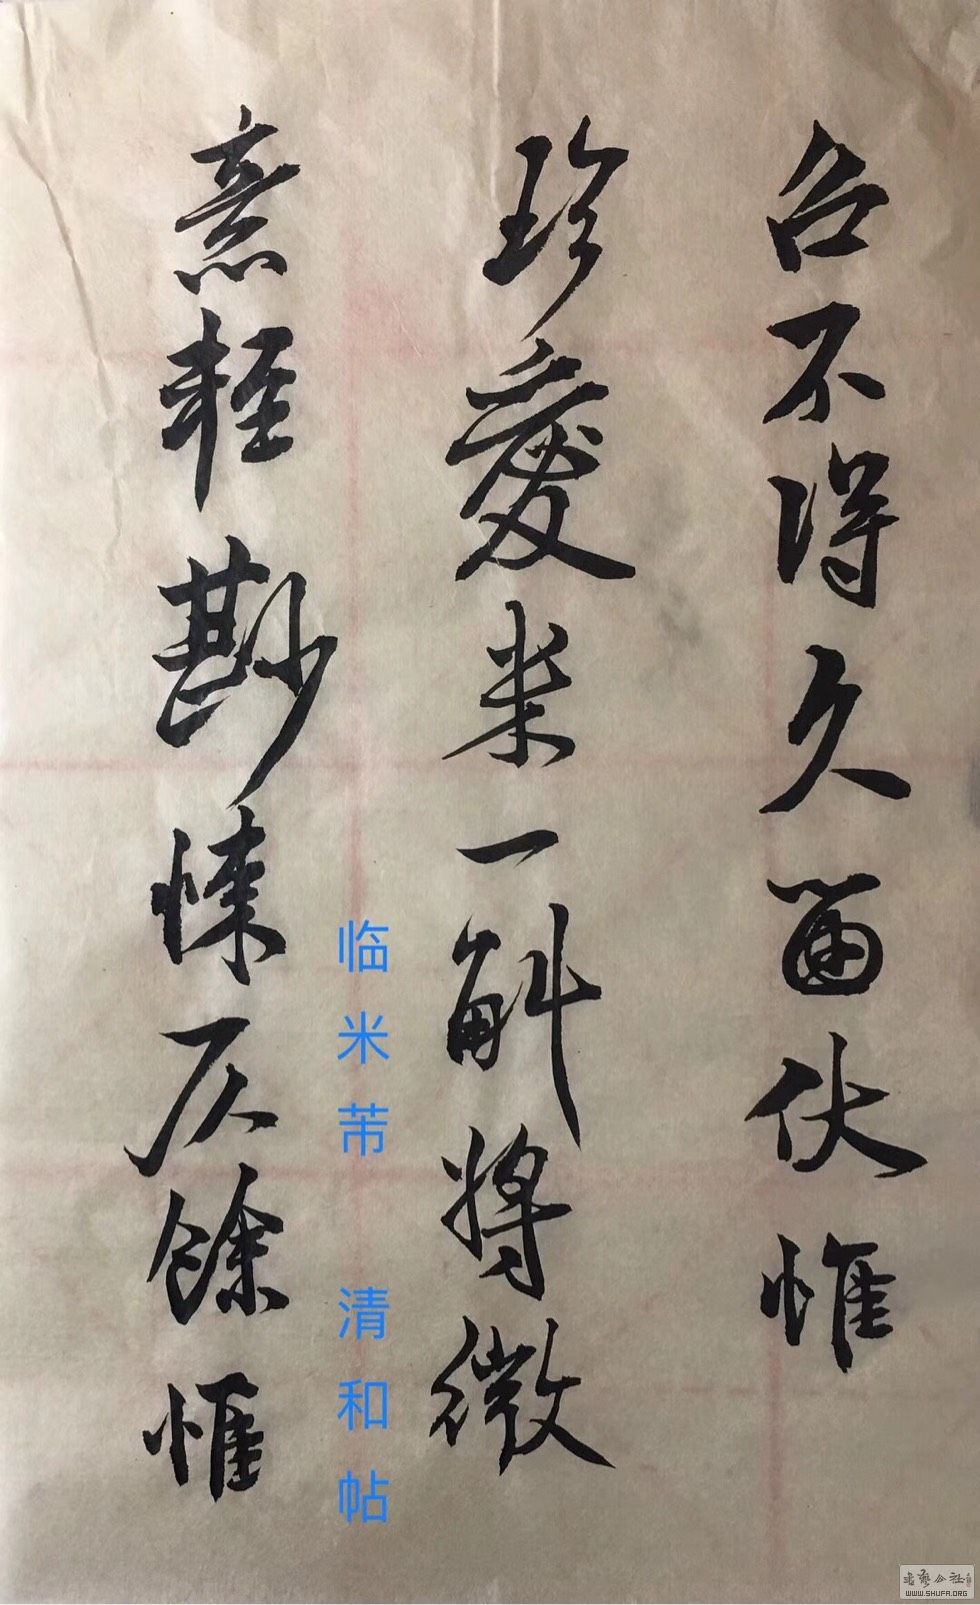 召不得久留伏惟
珍愛米一斛將微
意輕尠悚仄餘惟
临米芾 清和帖
書藝公社
WWW.SHUFA.ORG